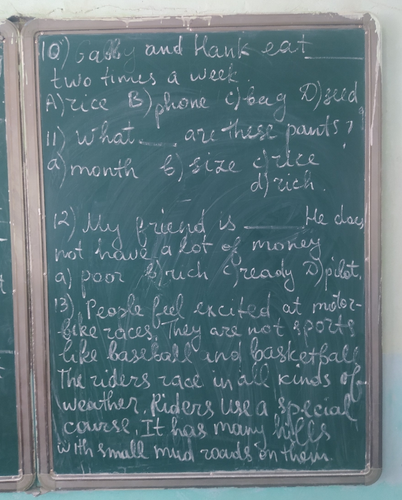 10) Sally and Hank eat ______
two times a week.
A) rice B) phone c) bag D) seed
11) What ___ are these pants?
a) month b) size c) rice
d) rich.
12) My friend is ______ He does
not have a lot of money
a) poor b) rich c) ready D) pilot.
13) People feel excited at motor-
bike races. They are not sports
like baseball and basketball
The riders race in all kinds of
weather. Riders use a special
course. It has many hills
with small mud roads on them.